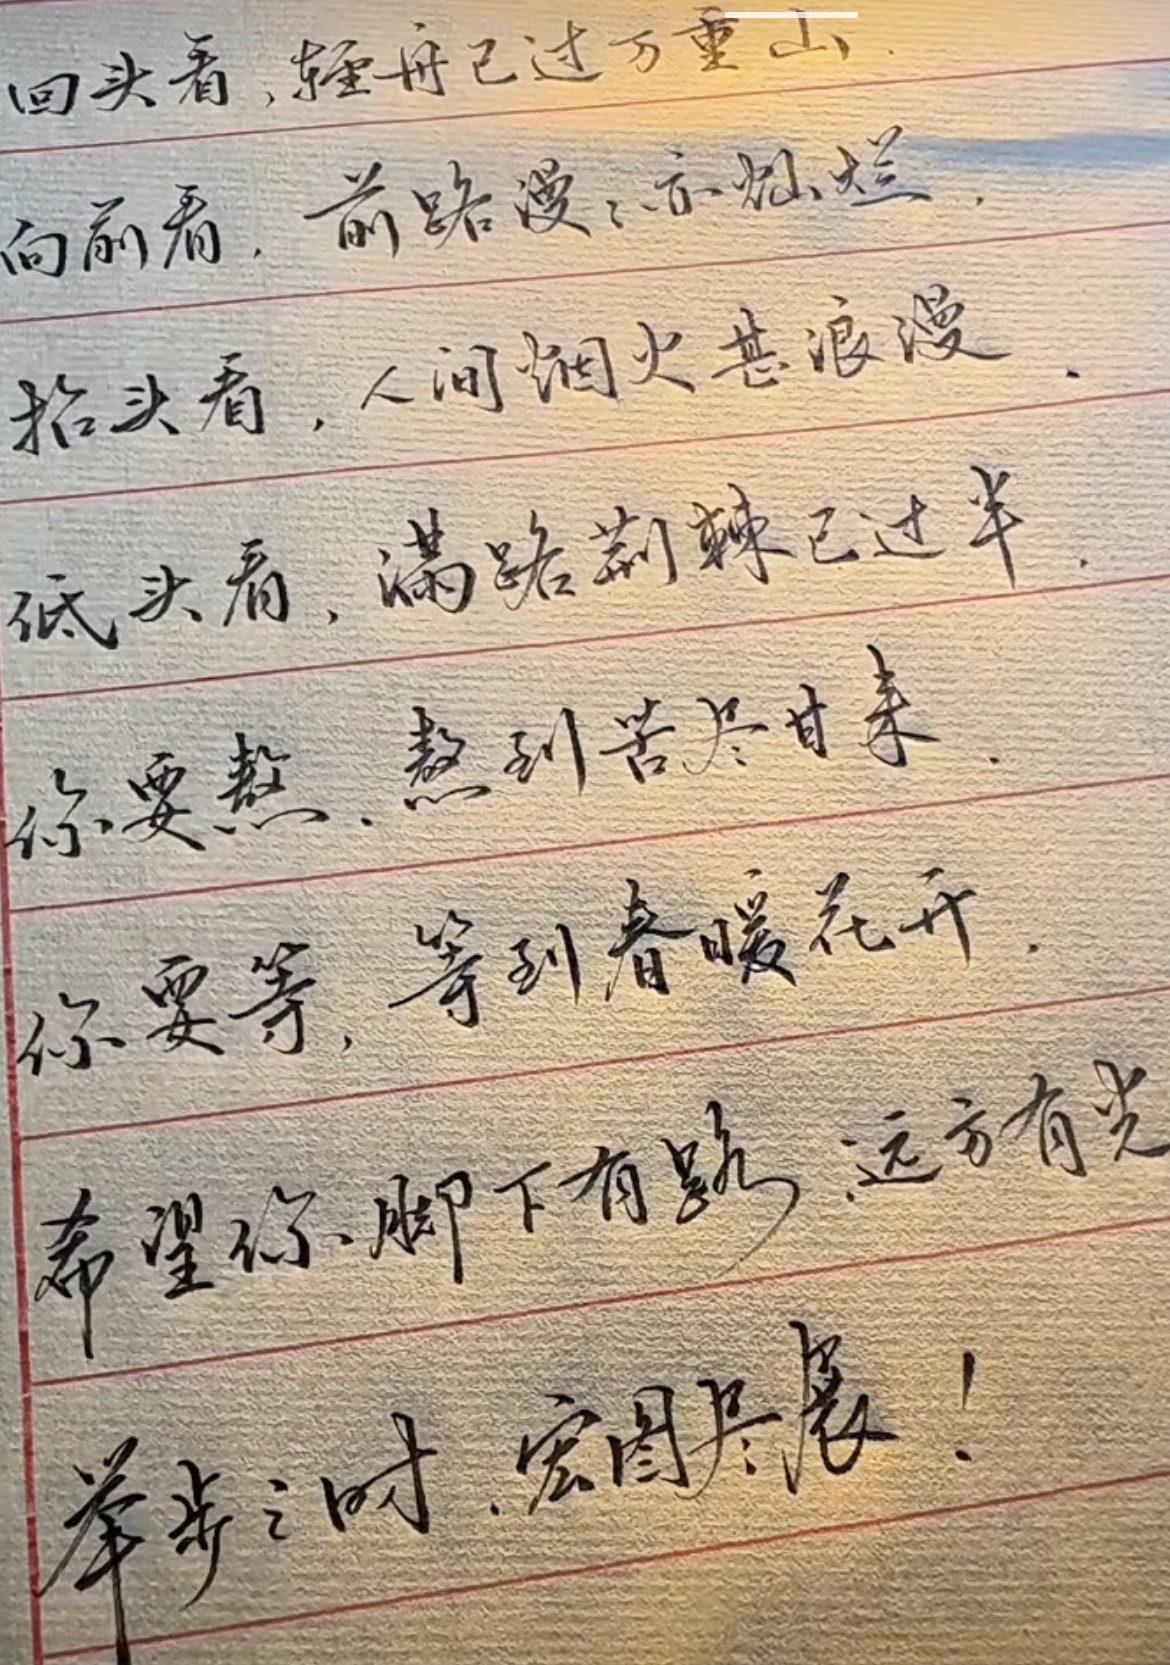 回头看,轻舟已过万重山.
向前看.前路漫漫亦灿烂.
抬头看,人间烟火甚浪漫.
低头看,满路荆棘已过半.
你要熬.熬到苦尽甘来.
你要等,等到春暖花开.
希望你脚下有路.远方有光
举步之时.宏图尽展!